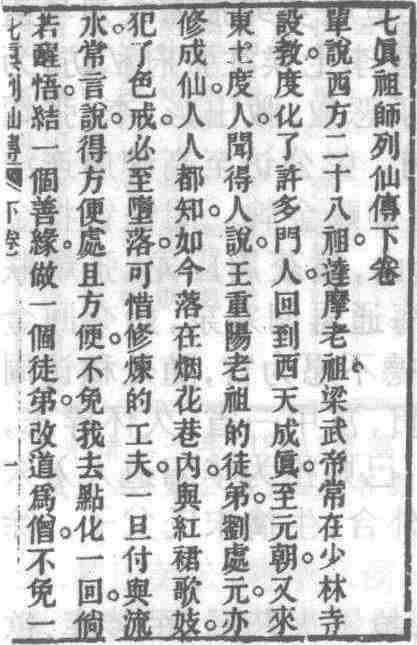 七眞祖師列仙傳下卷
單說西方二十八祖。達摩老祖。梁武帝常在少林寺
設教度化了許多門人。回到西天成眞。至元朝。又來
東土度人。聞得人說王重陽老祖的徒弟。劉處元。亦
修成仙。人人都知。如今落在烟花巷內。與紅裙歌妓。
犯了色戒。必至墮落。可惜修煉的工夫。一旦付與流
水。常言說。得方便處且方便。不免我去點化一回。倘
若醒悟。結一個善緣。做一個徒弟。改道爲僧。不免一
七眞列仙傳 下卷 一